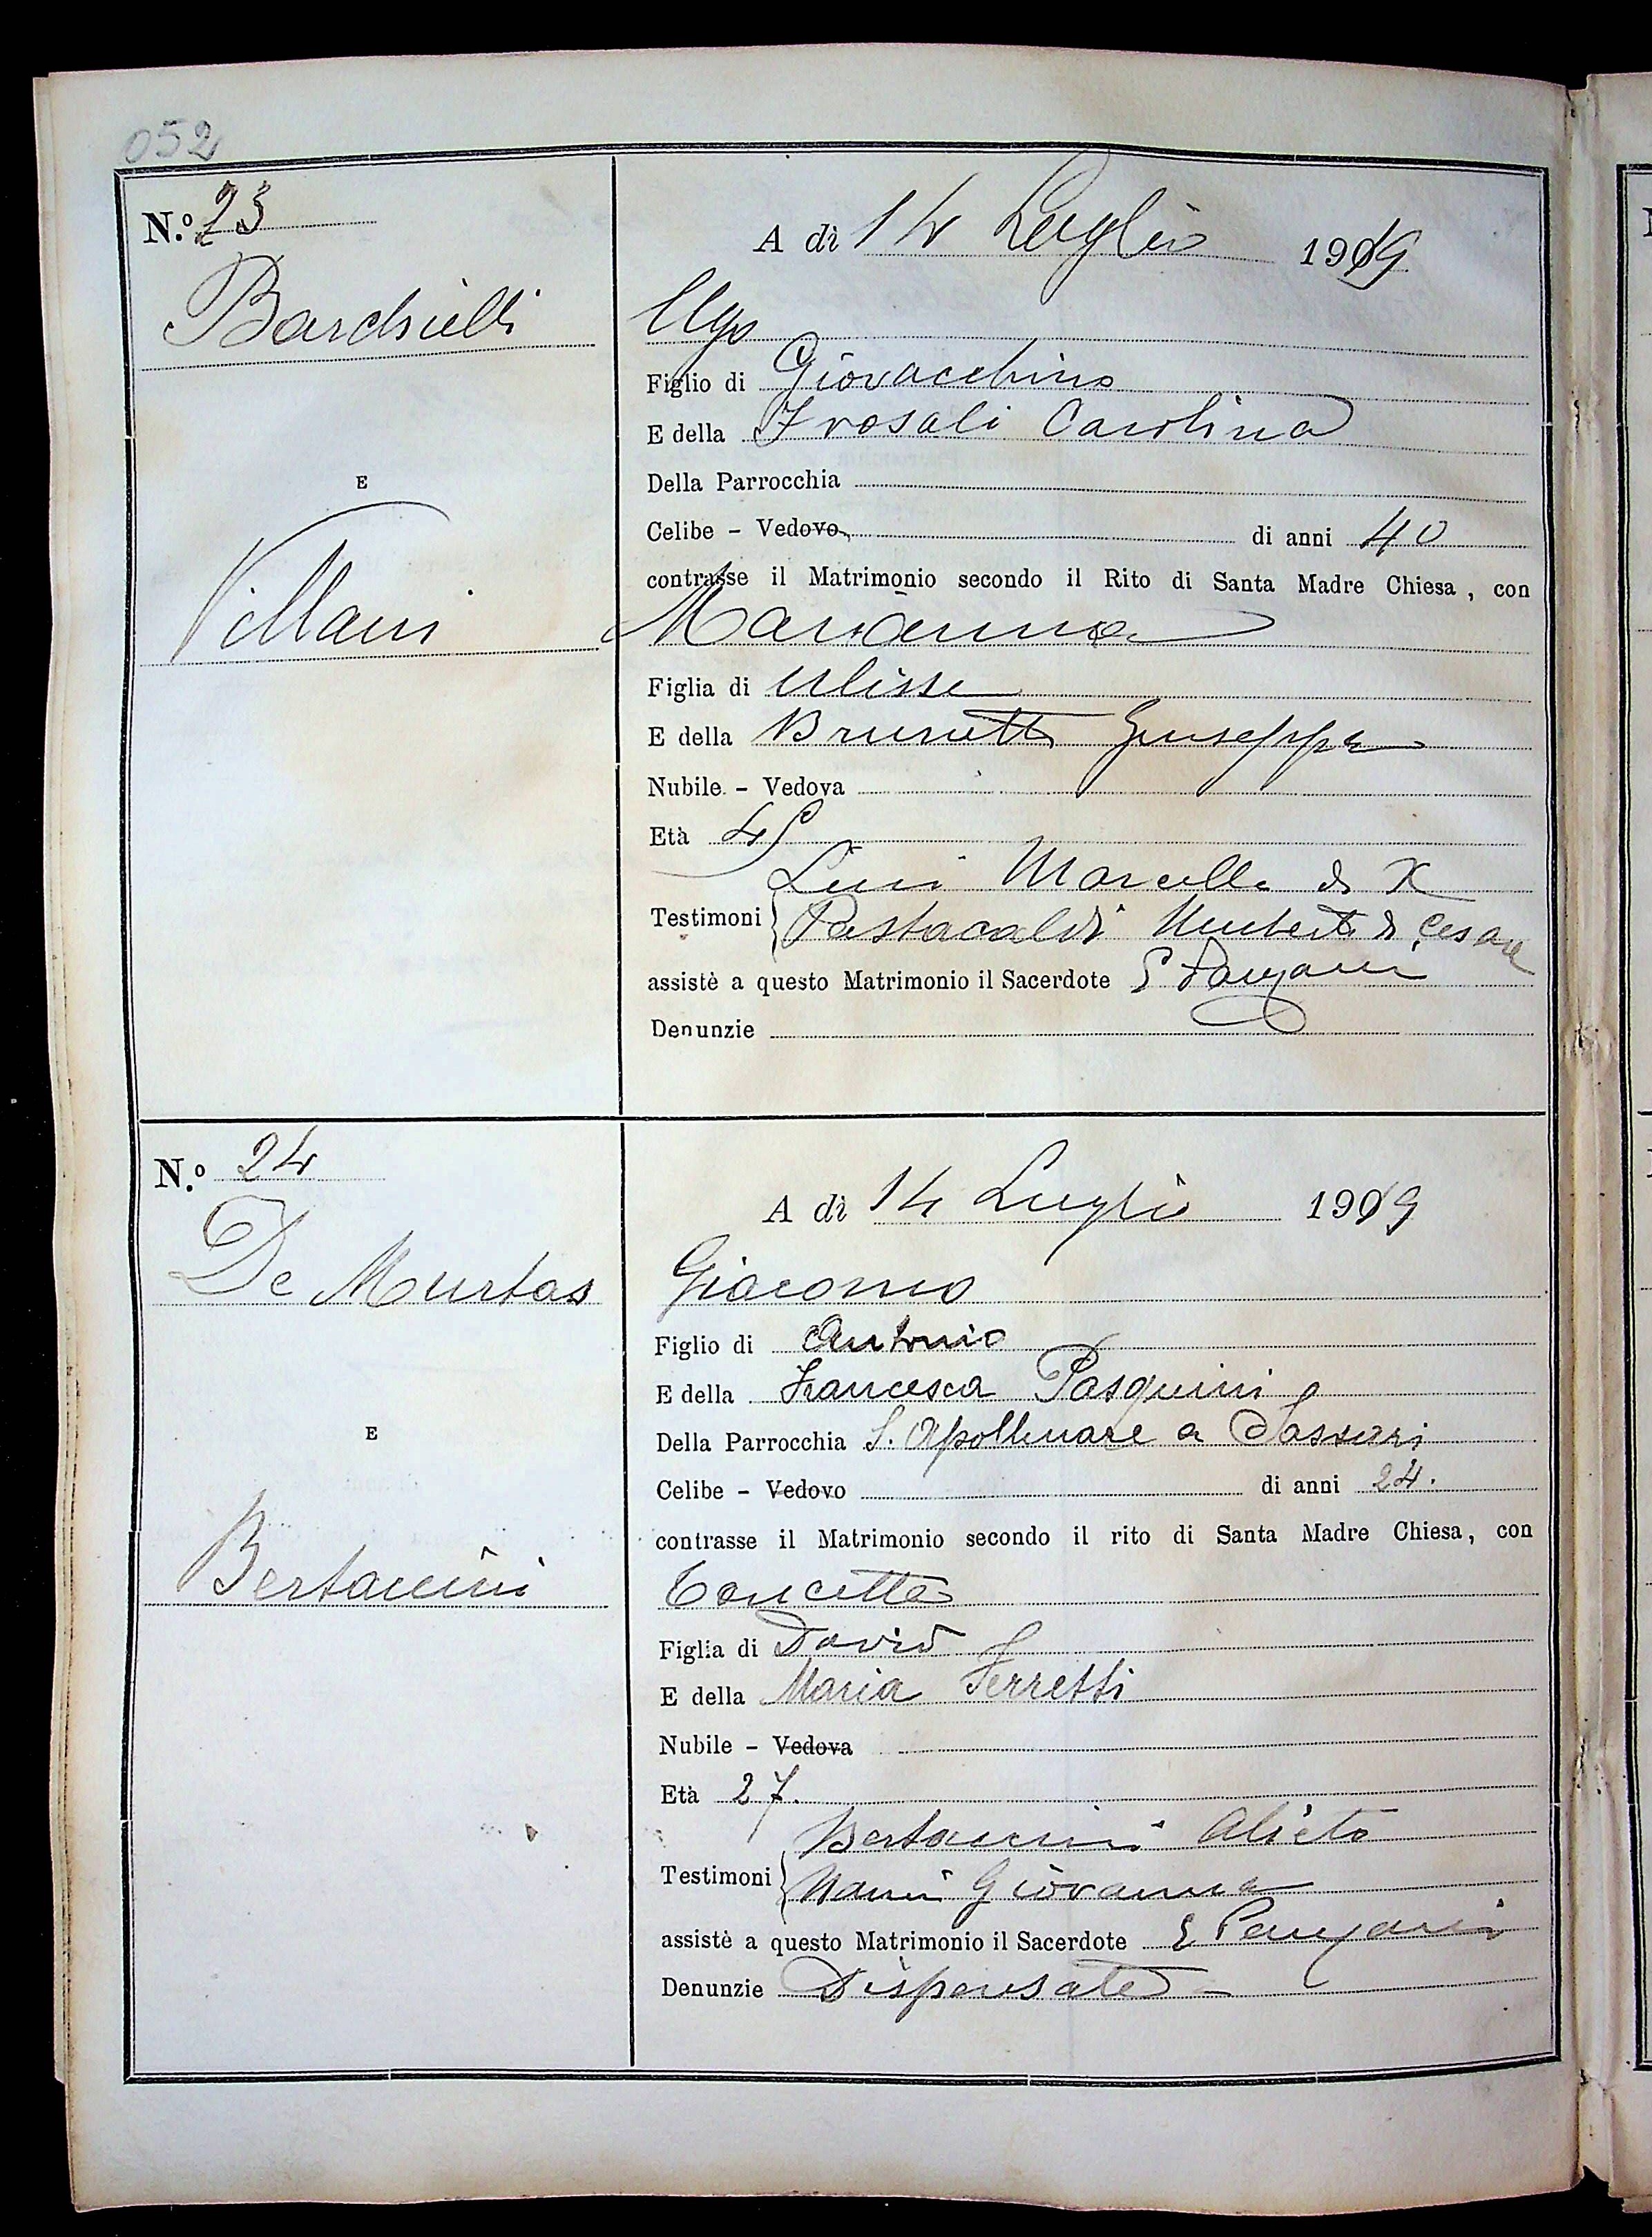 052
N.º 23
A dì 14 Luglio 1919
Bardsielli
Ugo
Figlio di Giovacchino
E della Frosali Carolina
Della Parrocchia
E
Celibe - Vedovo di anni 40
contrasse il Matrimonio secondo il Rito di Santa Madre Chiesa, con
Villani
Marianna
Figlia di Ulisse
E della Brunetti Giuseppa
Nubile - Vedova
Età
Marcello di
Testimoni
Pastacaldi Umberto di Cesare
assistè a questo Matrimonio il Sacerdote
Denunzie
N.º 24
A dì 14 Luglio 1919
De Murtas
Giacomo
Figlio di Antonio
E della Francesca Pasquini
Della Parrocchia S. Apollinare a Sassari
E
Celibe - Vedovo di anni 24.
contrasse il Matrimonio secondo il rito di Santa Madre Chiesa, con
Bertaccini
Concetta
Figlia di David
E della Maria Ferretti
Nubile - Vedova
Età 27.
Bertaccini Alieto
Testimoni
Nanni Giovanna
assistè a questo Matrimonio il Sacerdote E Panzani
Denunzie Dispensate